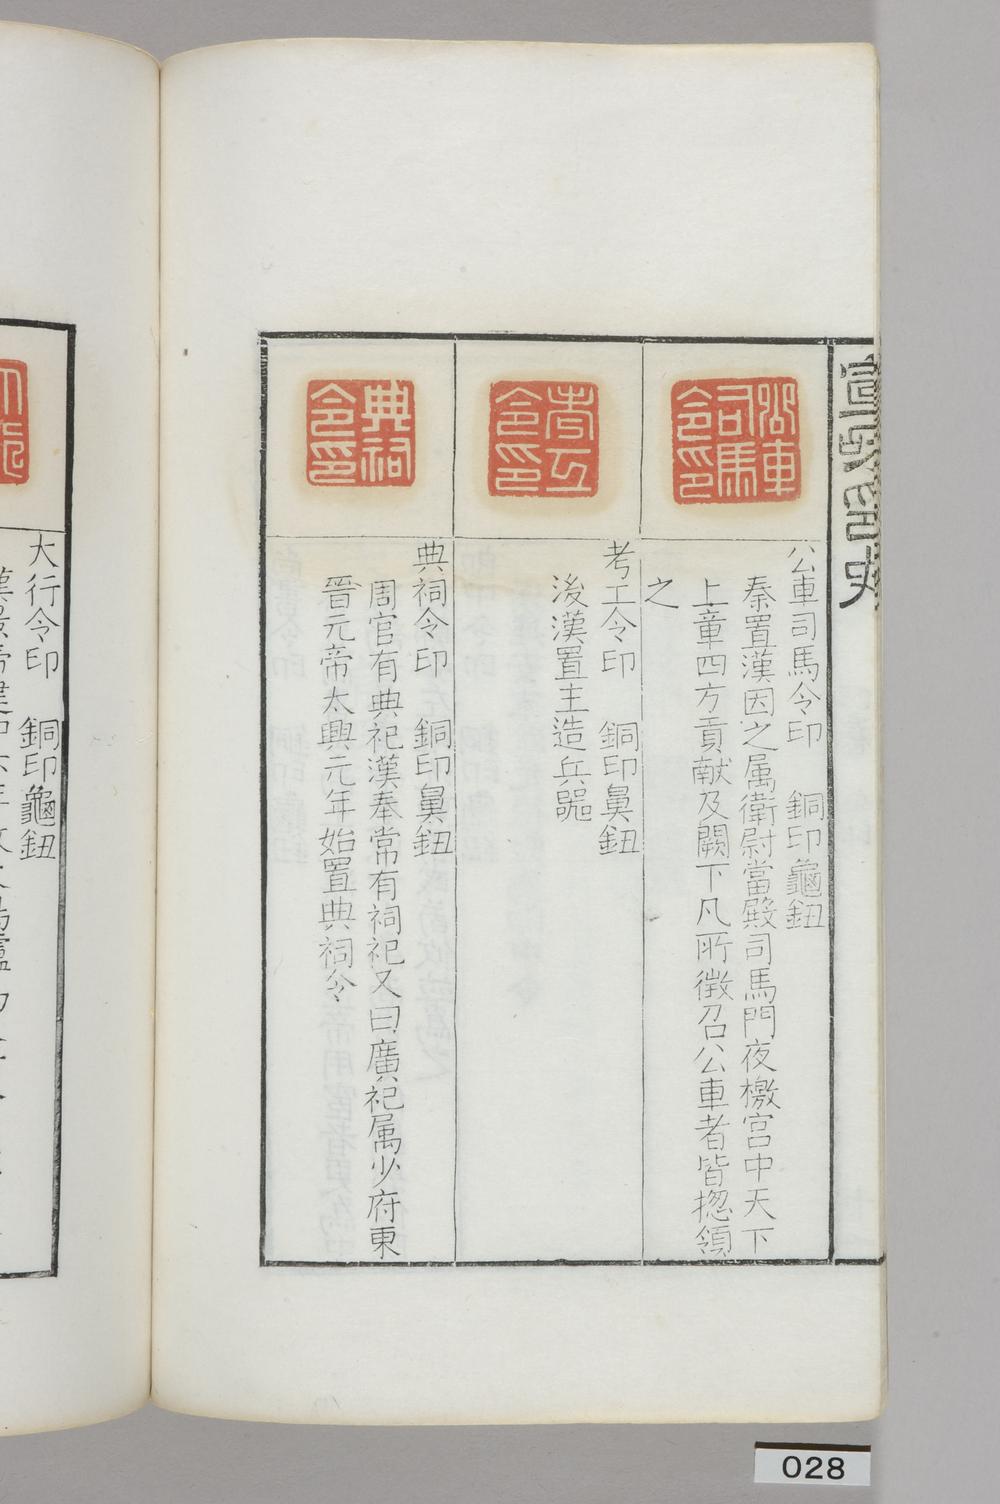 宣和印史
公車司馬令印
公車司馬令印　銅印龜鈕
秦置漢因之属衛尉當殿司馬門夜檄宫中天下
上章四方貢献及闕下凡所徴召公車者皆揔領
之
考工令印
考工令印　銅印鼻鈕
後漢置主造兵噐
典祠令印
典祠令印　銅印鼻鈕
周官有典祀漢奉常有祠祀又曰廣祀属少府東
晉元帝太興元年始置典祠令
大行令印　銅印龜鈕
028